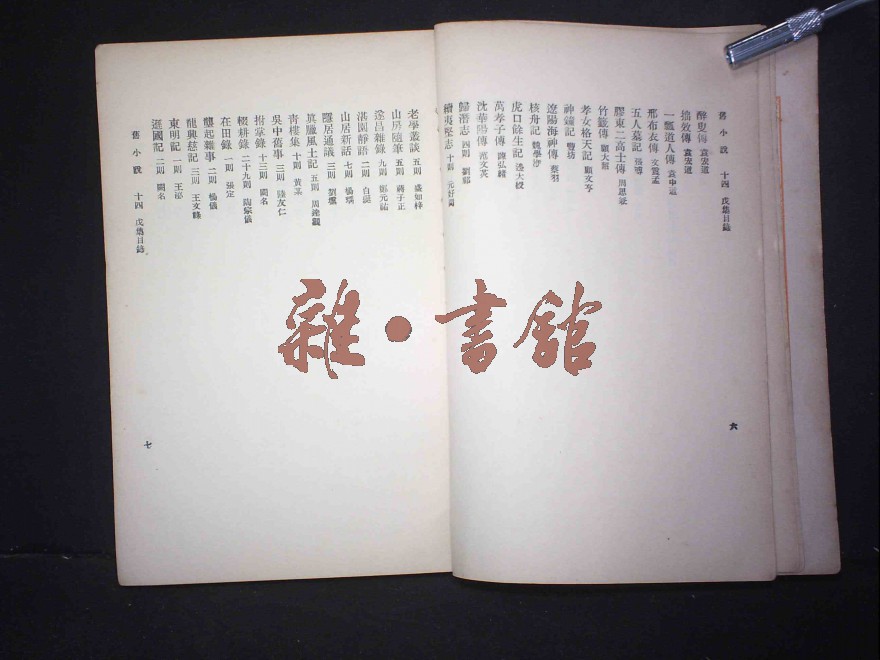 舊小說 十四 戊集目錄
醉叟傳 袁宏道
拙效傳 袁宏道
一瓢道人傳 袁中道
邢布衣傳 文震孟
五人墓記 張溥
膠東二高士傳
竹籖傳 顧大韶
孝女格天記 顧文亨
神鐘記 豐坊
遼陽海神傳 蔡羽
核舟記 魏學洢
虎口餘生記 邊大綬
萬孝子傳 陳弘緒
沈華陽傳 范文英
歸潛志 四則 劉祁
續夷堅志 十則 元好問
六
老學叢談 五則 盛如梓
山房隨筆 五則 蔣子正
遂昌雜錄 九則 鄭元祐
湛園靜語 二則 白珽
山居新話 七則 楊瑀
隱居通議 三則 劉壎
眞臘風土記 五則 周達觀
靑樓集 十則 黃
吳中舊事 三則 陸友仁
拊掌錄 十三則 闕名
輟耕錄 二十九則 陶宗儀
在田錄 一則 張定
壟起雜事 二則 楊儀
龍興慈記 三則 王文祿
東明記 一則 王泌
遜國記 二則 闕名
舊小說 十四 戊集目錄
七
雜·書館